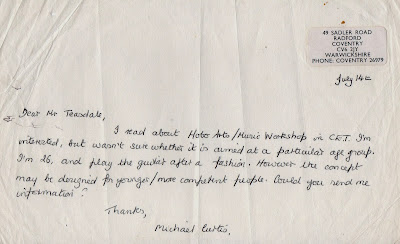 49 SADLER ROAD
RADFORD
COVENTRY
CV6 2JY
WARWICKSHIRE
PHONE: COVENTRY 26979
July 14th
Dear Mr Teasdale,
I read about Hobo Arts/Music Workshop in C.E.T. I'm
interested, but wasn't sure whether it is aimed at a particular age group.
I'm 26, and play the guitar after a fashion. However the concept
may be designed for younger/more competent people. Could you send me
information?
Thanks,
Michael Curtis,